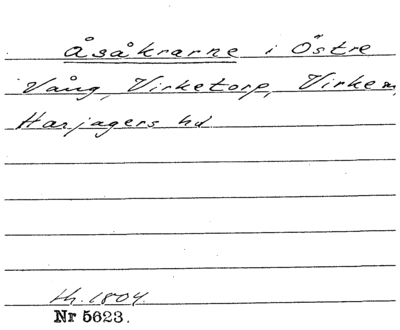 Åsåkrarne i Östre
Vång, Virketorp, Virkem,
Harjagers hd
th. 1804.
Nr 5623.